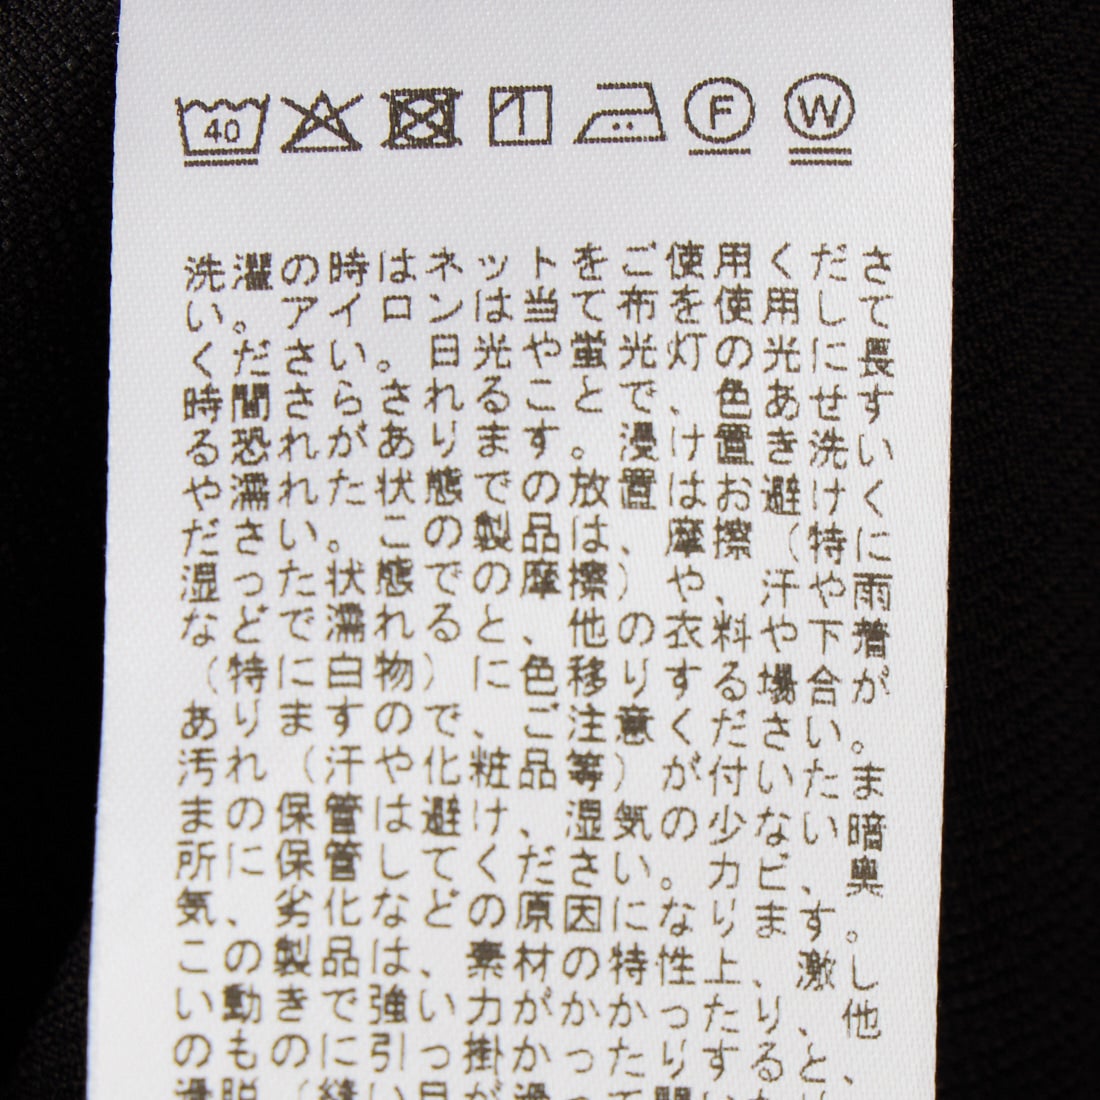 40 F W
洗濯の時はネットをご使用くださ
い。アイロンは当て布を使用して
ください。日光や蛍光灯の光に長
時間さらされることで、色あせす
る恐れがあります。漫け置き洗い
や濡れた状態での放置はお避けく
ださい。この製品は、摩擦（特に
湿った状態での摩擦）や汗や雨
などで濡れると、他の衣料や下着
（特に白物）に色移りする場合が
ありますので、ご注意ください。
汚れ（汗や化粧品等）が付いたま
まの保管は避け、湿気の少ない暗
所に保管してください。カビ、奥
気、劣化などの原因になります。
この製品は、素材の特性上、激し
い動きで強い力がかかったり、他
のものに引っ掛かったりすると、